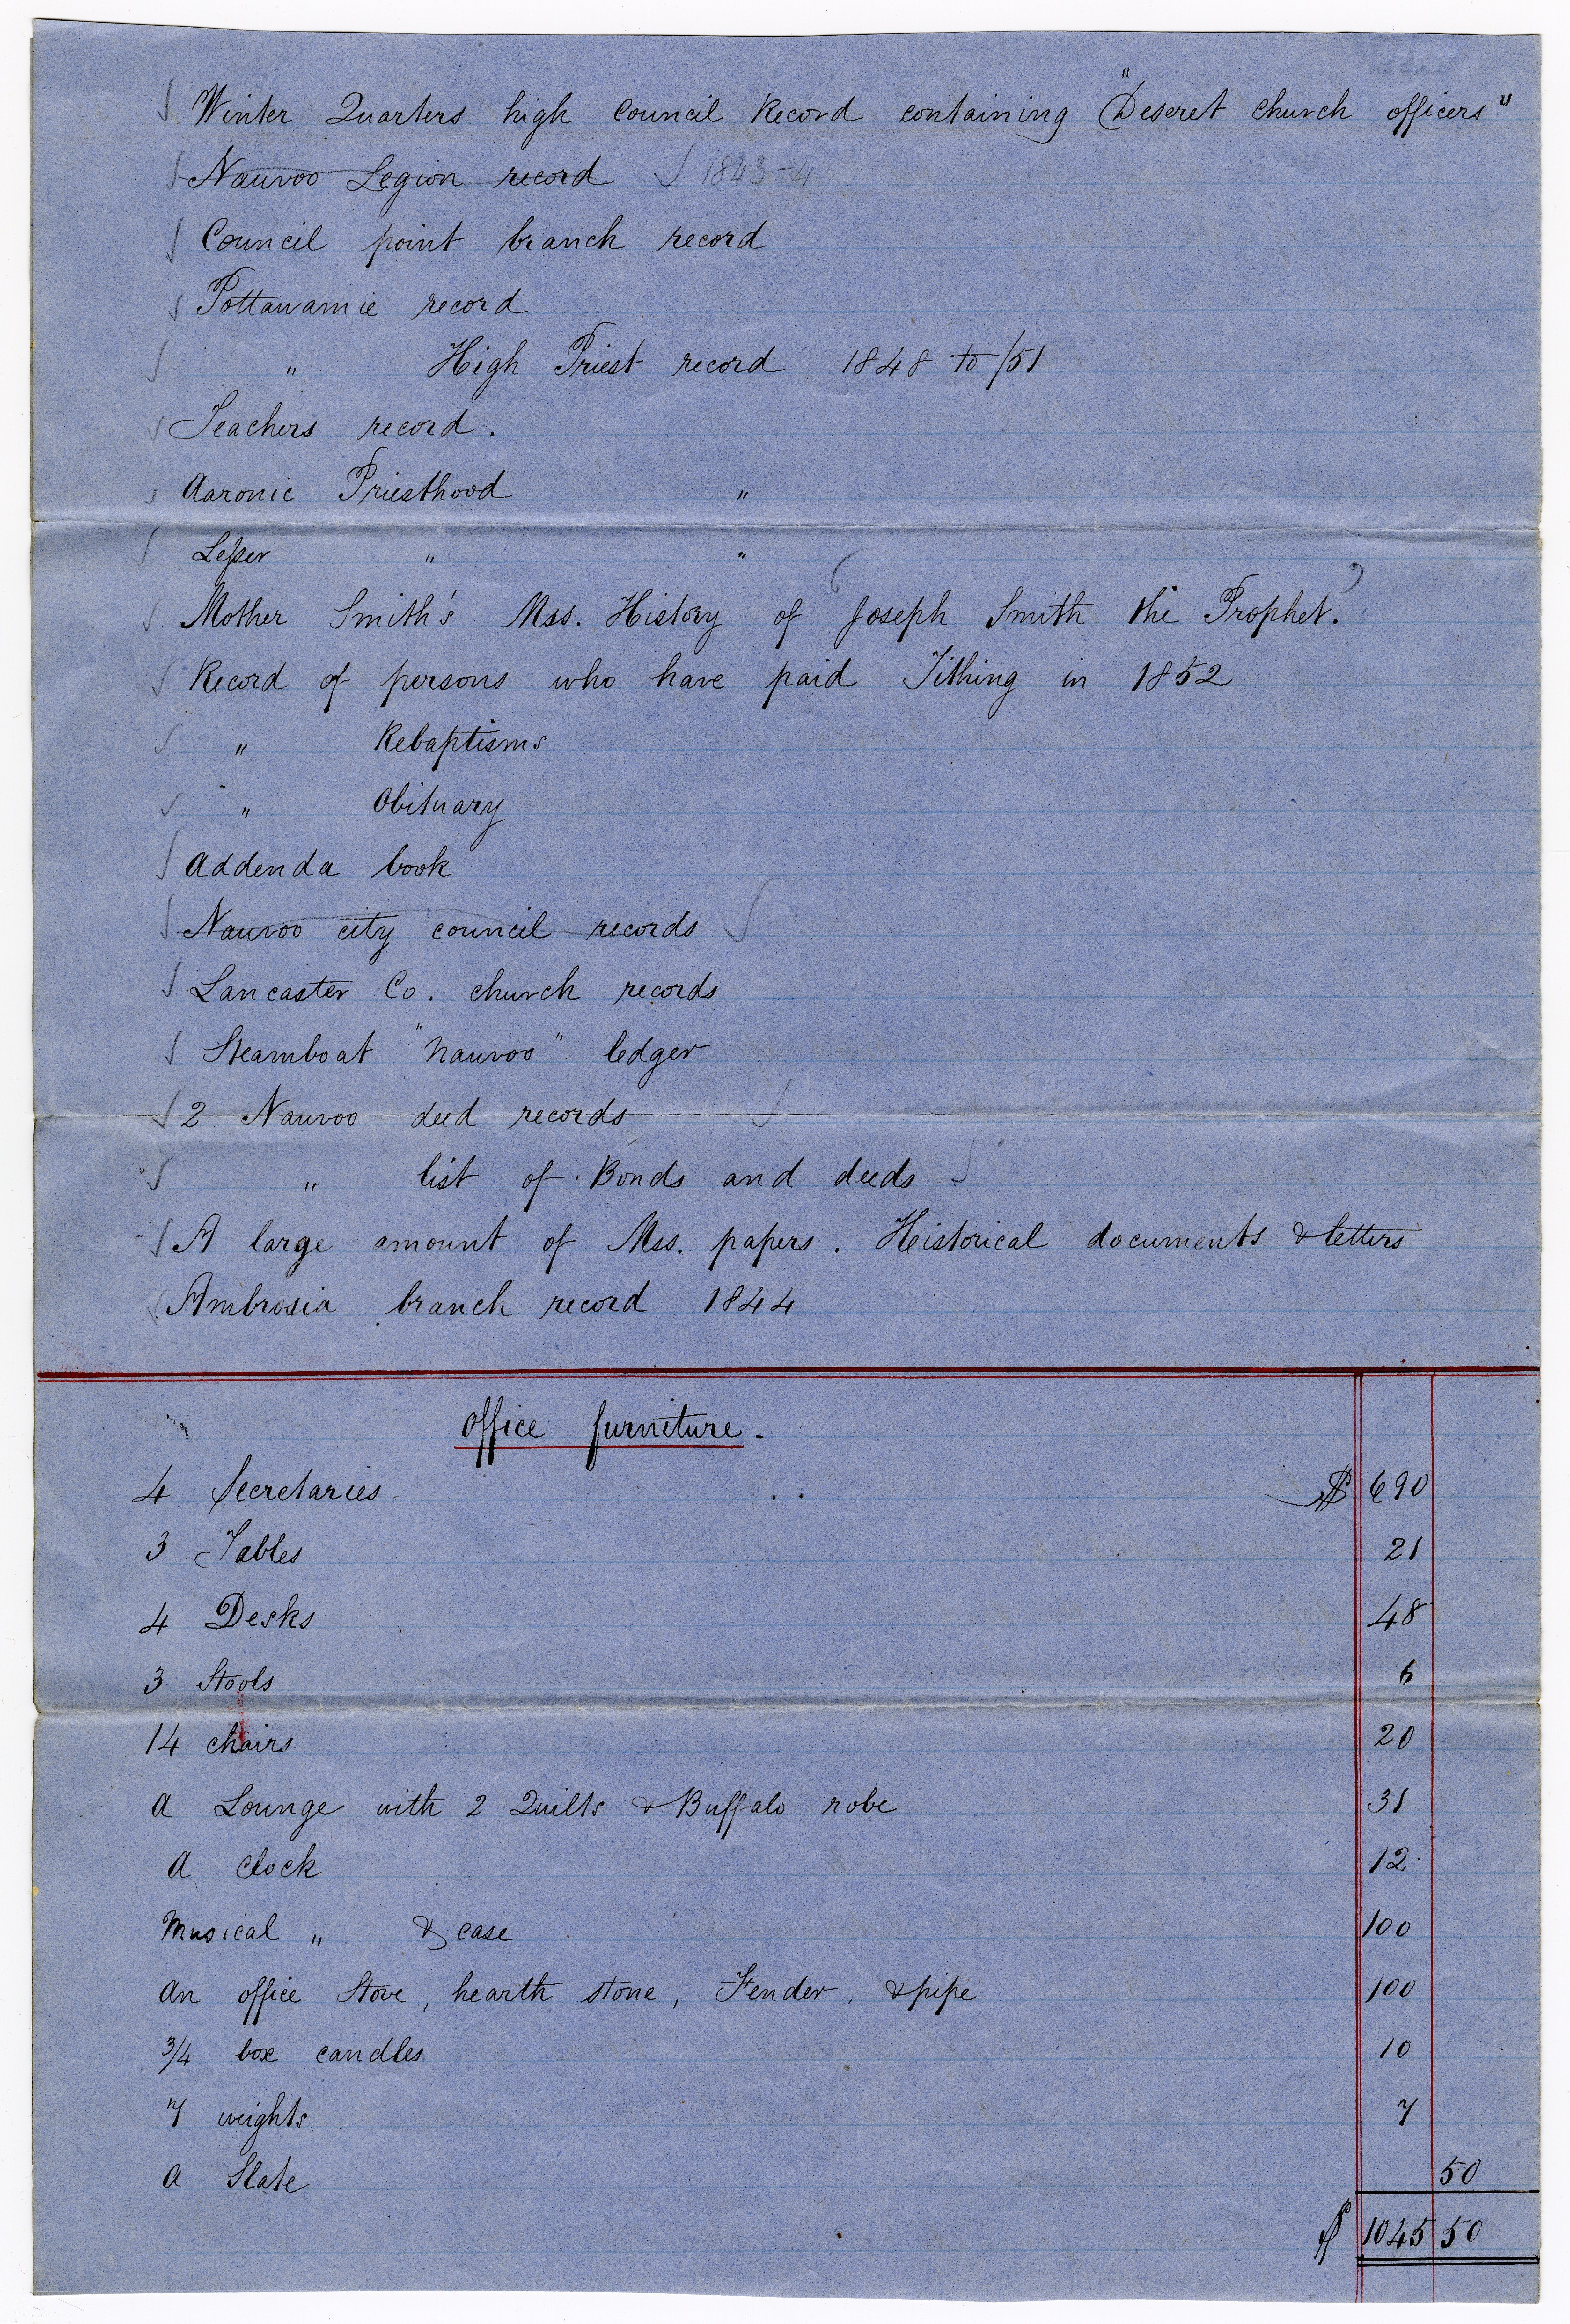 Winter Quarters high council Record containing "Deseret church officers"
Nauvoo Legion record 1843-4
Council point branch record
Pottawamie record
" High Priest record 1848 to /51
Teachers record.
Aaronic Priesthood "
Lesser " "
Mother Smith's Mss. History of (Joseph Smith the Prophet.)
Record of persons who have paid Tithing in 1852
" Rebaptisms
" Obituary
Addenda book
Nauvoo city council records
Lancaster Co. church records
Steamboat "Nauvoo" ledger
2 Nauvoo deed records
" list of Bonds and deeds
A large amount of Mss. papers. Heistorical documents & letters
Ambrosia branch record 1844
Office furniture.
4 Secretaries $ 690
3 Tables 21
4 Desks 48
3 Stools 6
14 chairs 20
A Lounge with 2 Quilts & Buffalo robe 31
A clock 12
Musical " & case 100
An office Stove, hearth stone, Fender, & pipe 100
3/4 box candles 10
7 weights 7
A Slate 50
$ 1045 50